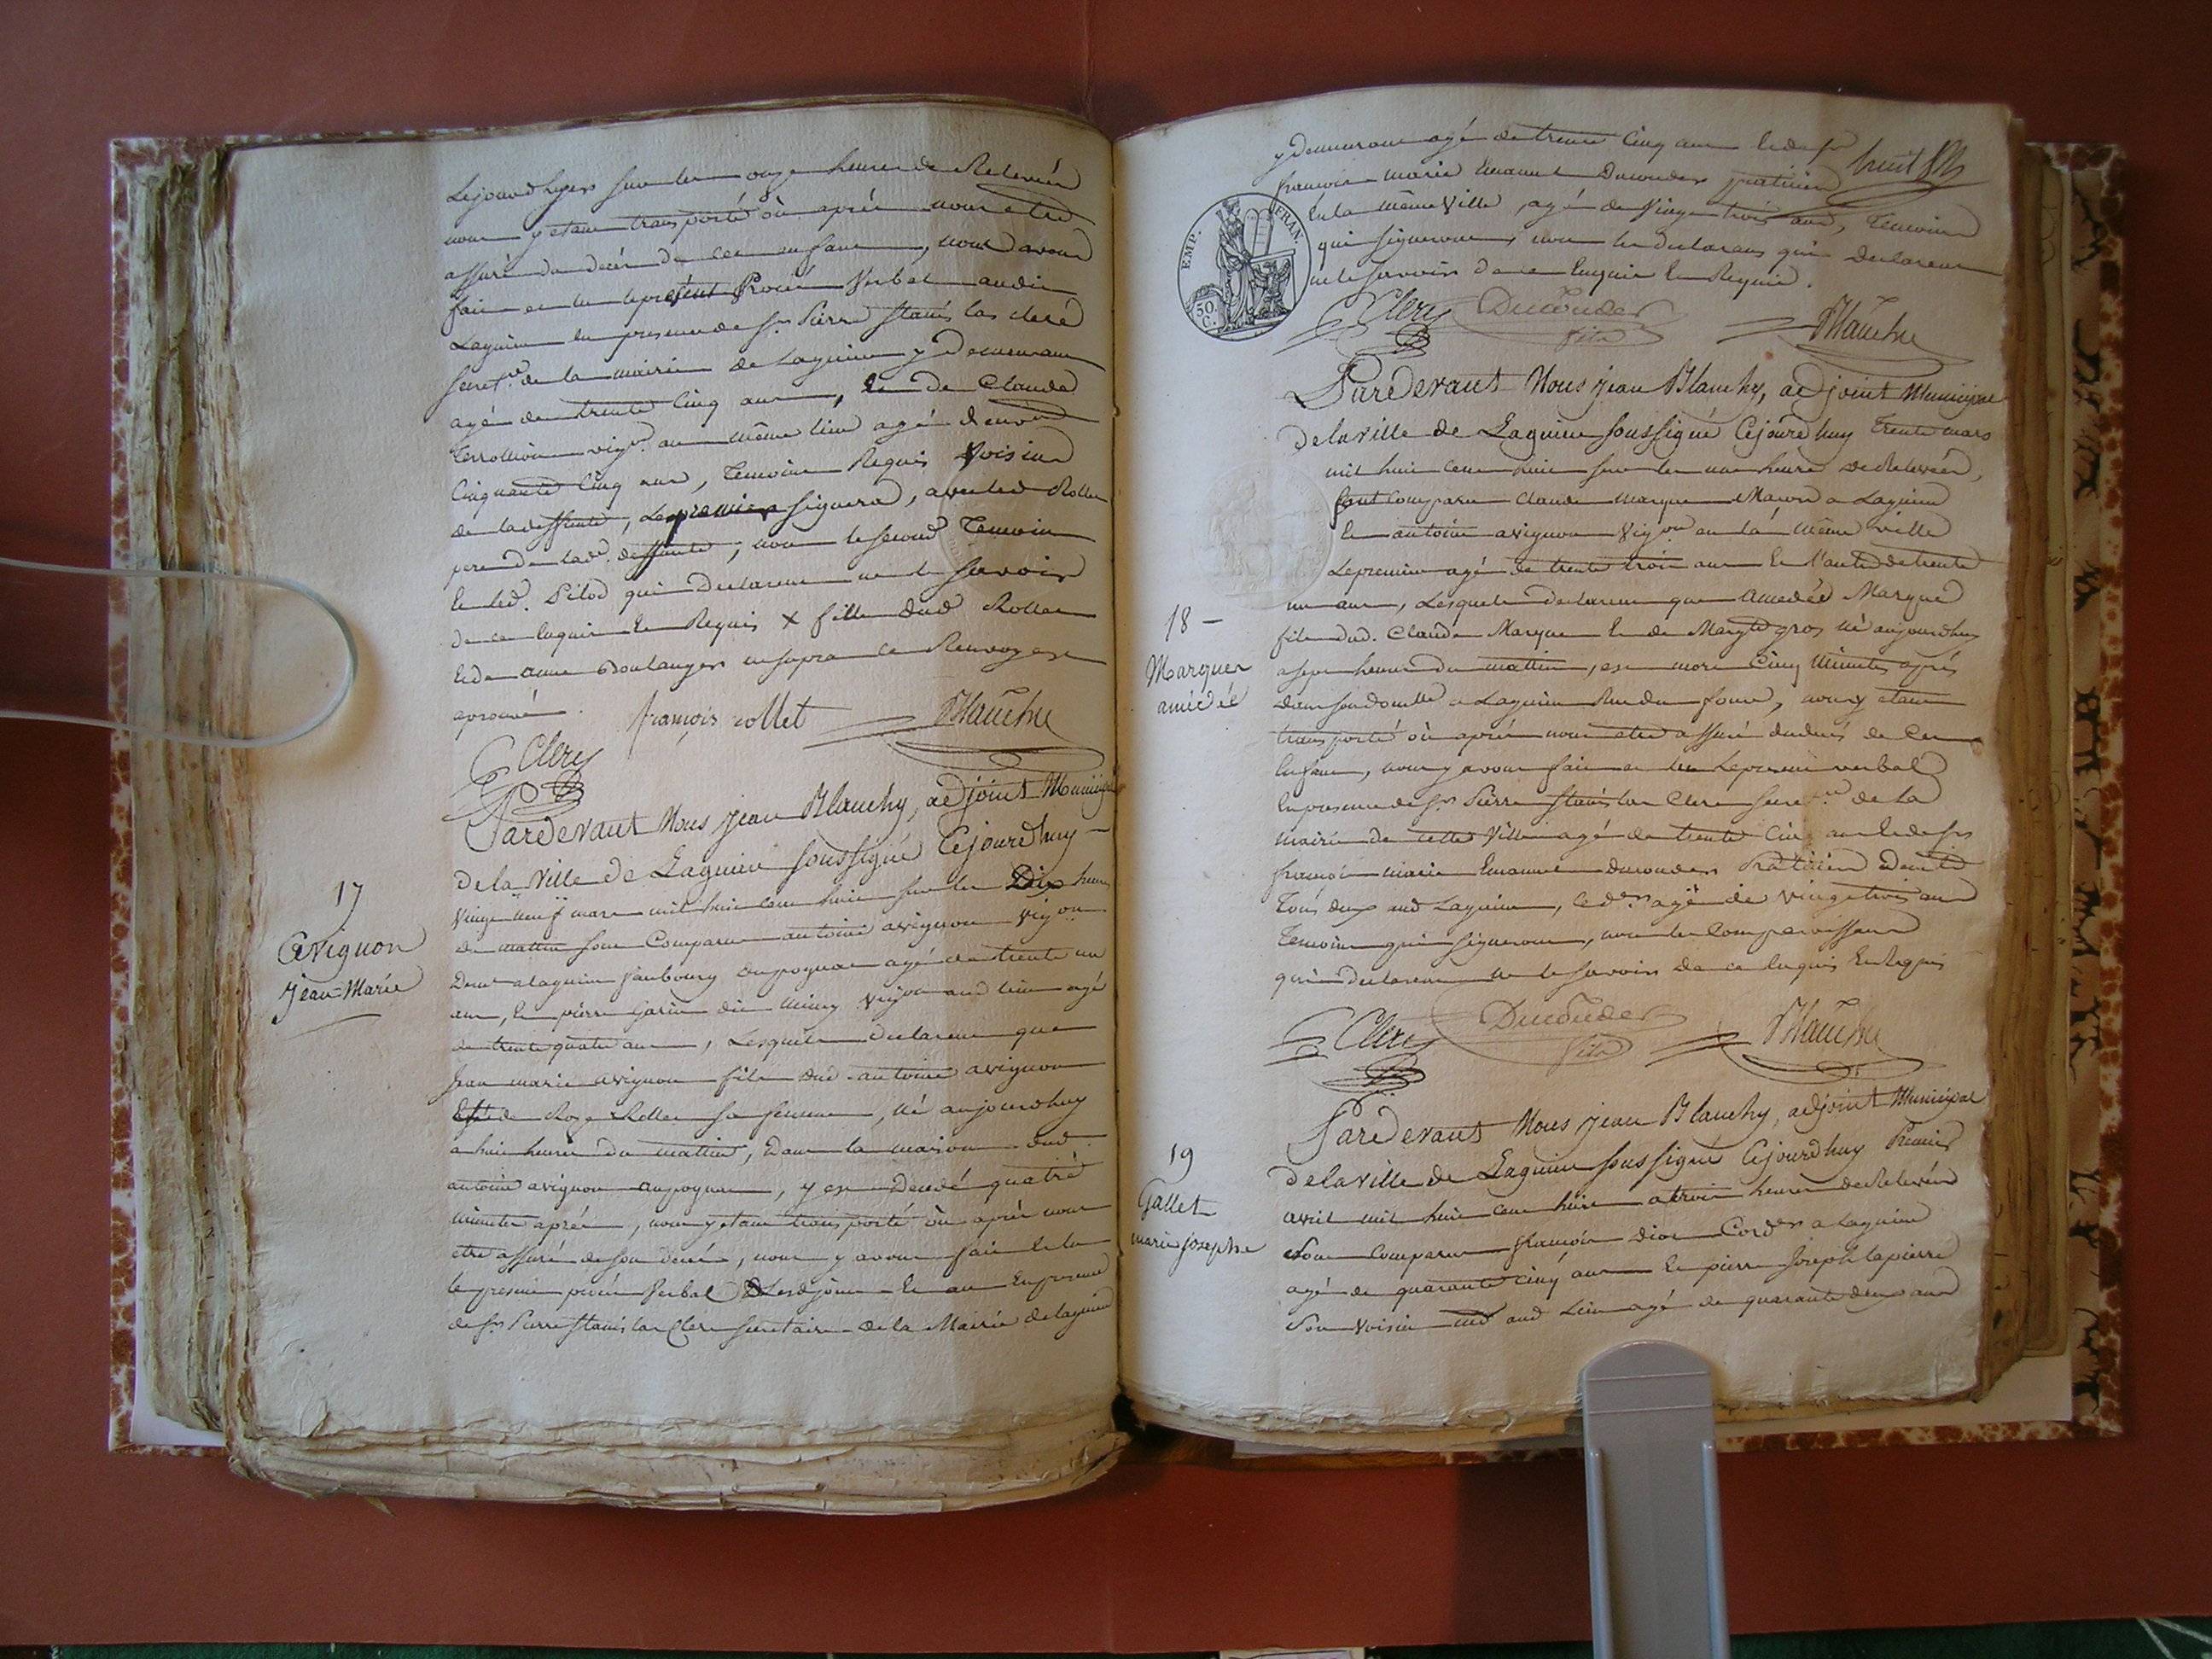 Lejourd'hyer sur les onze heures de Relevée
nous y etant transporté où après nous etre
assuré du decés de cet enfant, nous avons
fait et lu le présent Procès Verbal audit
Lagnieu en presence de Sr Pierre Stanislas clerc
secret.re de la mairie de Lagnieu y demeurant
agé de trente Cinq ans, et de Claude
vig.on au même lieu agé denviron
Cinquante Cinq ans, Temoins Requis Voisins
de la deffunte, Le premier signera, avec led Rollet
pere de lad.e deffunte, non le second Temoin
et led. Pilod qui declarent ne le savoir
de ce Enquis et Requis X fille dud Rollet
et de anne Boulanger ensupra ce Renvoy est
aprouvé.
françois rollet
Blanchy
Clerc
Pardevant Nous Jean Blanchy, adjoint Municipal
de la Ville de Lagnieu soussigné Cejourd'huy
Vingt neuf mars mil huit cent huit sur les Dix heures
du mattin sont Comparu antoine avignon vigon
Demt a lagnieu faubourg agé de trente un
ans, et pierre garin dit mircy vigon aud lieu agé
de trente quatre ans, Lesquels declarent que
Jean marie avignon fils dud antoine avignon
Et de Roze Rollet sa femme, né aujourdhuy
a huit heures du mattin, dans la maison dud.
antoine avignon, y est Decedé quatre
minutes après, nous y etant transporté où après nous
etre assuré de son decés, nous y avons fait et lu
le present procès Verbal Lesd jour et an En presence
de Sr Pierre Stanislas Clerc secretaire de la Mairie de lagnieu
17
Avignon
Jean-Marie
y demeurant agé de trente Cinq ans et de Sr
huit
françois marie Emanuel Ducouder praticien
En la même Ville, agé de Vingt trois ans, Temoins
qui signeront, non les declarants qui declarent
ne le savoir de ce Enquis et Requis.
EMP. FRAN.
50 C.
Clerc
Ducouder
fils
Blanchy
Pardevant Nous Jean Blanchy, adjoint Municipal
de la ville de Lagnieu soussigné Cejourd'huy Trente mars
mil huit cent huit sur les une heure de Relevée,
sont Comparu Claude marque Macon a Lagnieu
Et antoine avignon Vigon en la même ville
Le premier agé de trente trois ans Et l'autre de trente
un ans, Lesquels declarent que Amedée Marque
fils dud. Claude Marque Et de Margte gros né aujourdhuy
a sept heures du mattin, est mort Cinq Minutes après
dans son domille a Lagnieu Rue du four, nous y etant
transporté où après nous etre assuré du decés de Cet
Enfant, nous y avons fait et lu Le present verbal
En presence de Sr Pierre Stanislas Clerc secret.re de la
mairie de cette Ville agé de trente Cinq ans Et de Sr
françois marie Emanuel ducouder Praticien
Tous deux aud Lagnieu, ce d.er agé de vingt trois ans
Temoins qui signeront, non les Comparoissants
qui declarent ne le savoir de ce Enquis Et Requis
18
Marque
amédée
Clerc
Ducouder
fils
Blanchy
Pardevant Nous Jean Blanchy, adjoint Municipal
de la ville de Lagnieu soussigné Cejourd'huy Premier
avril mil huit cent huit a trois heures de Relevée
sont Comparu françois Cord.er a Lagnieu
agé de quarante Cinq ans Et pierre Joseph lapierre
Son Voisin aud Lieu agé de quarante deux ans
19
Gallet
marie josephe